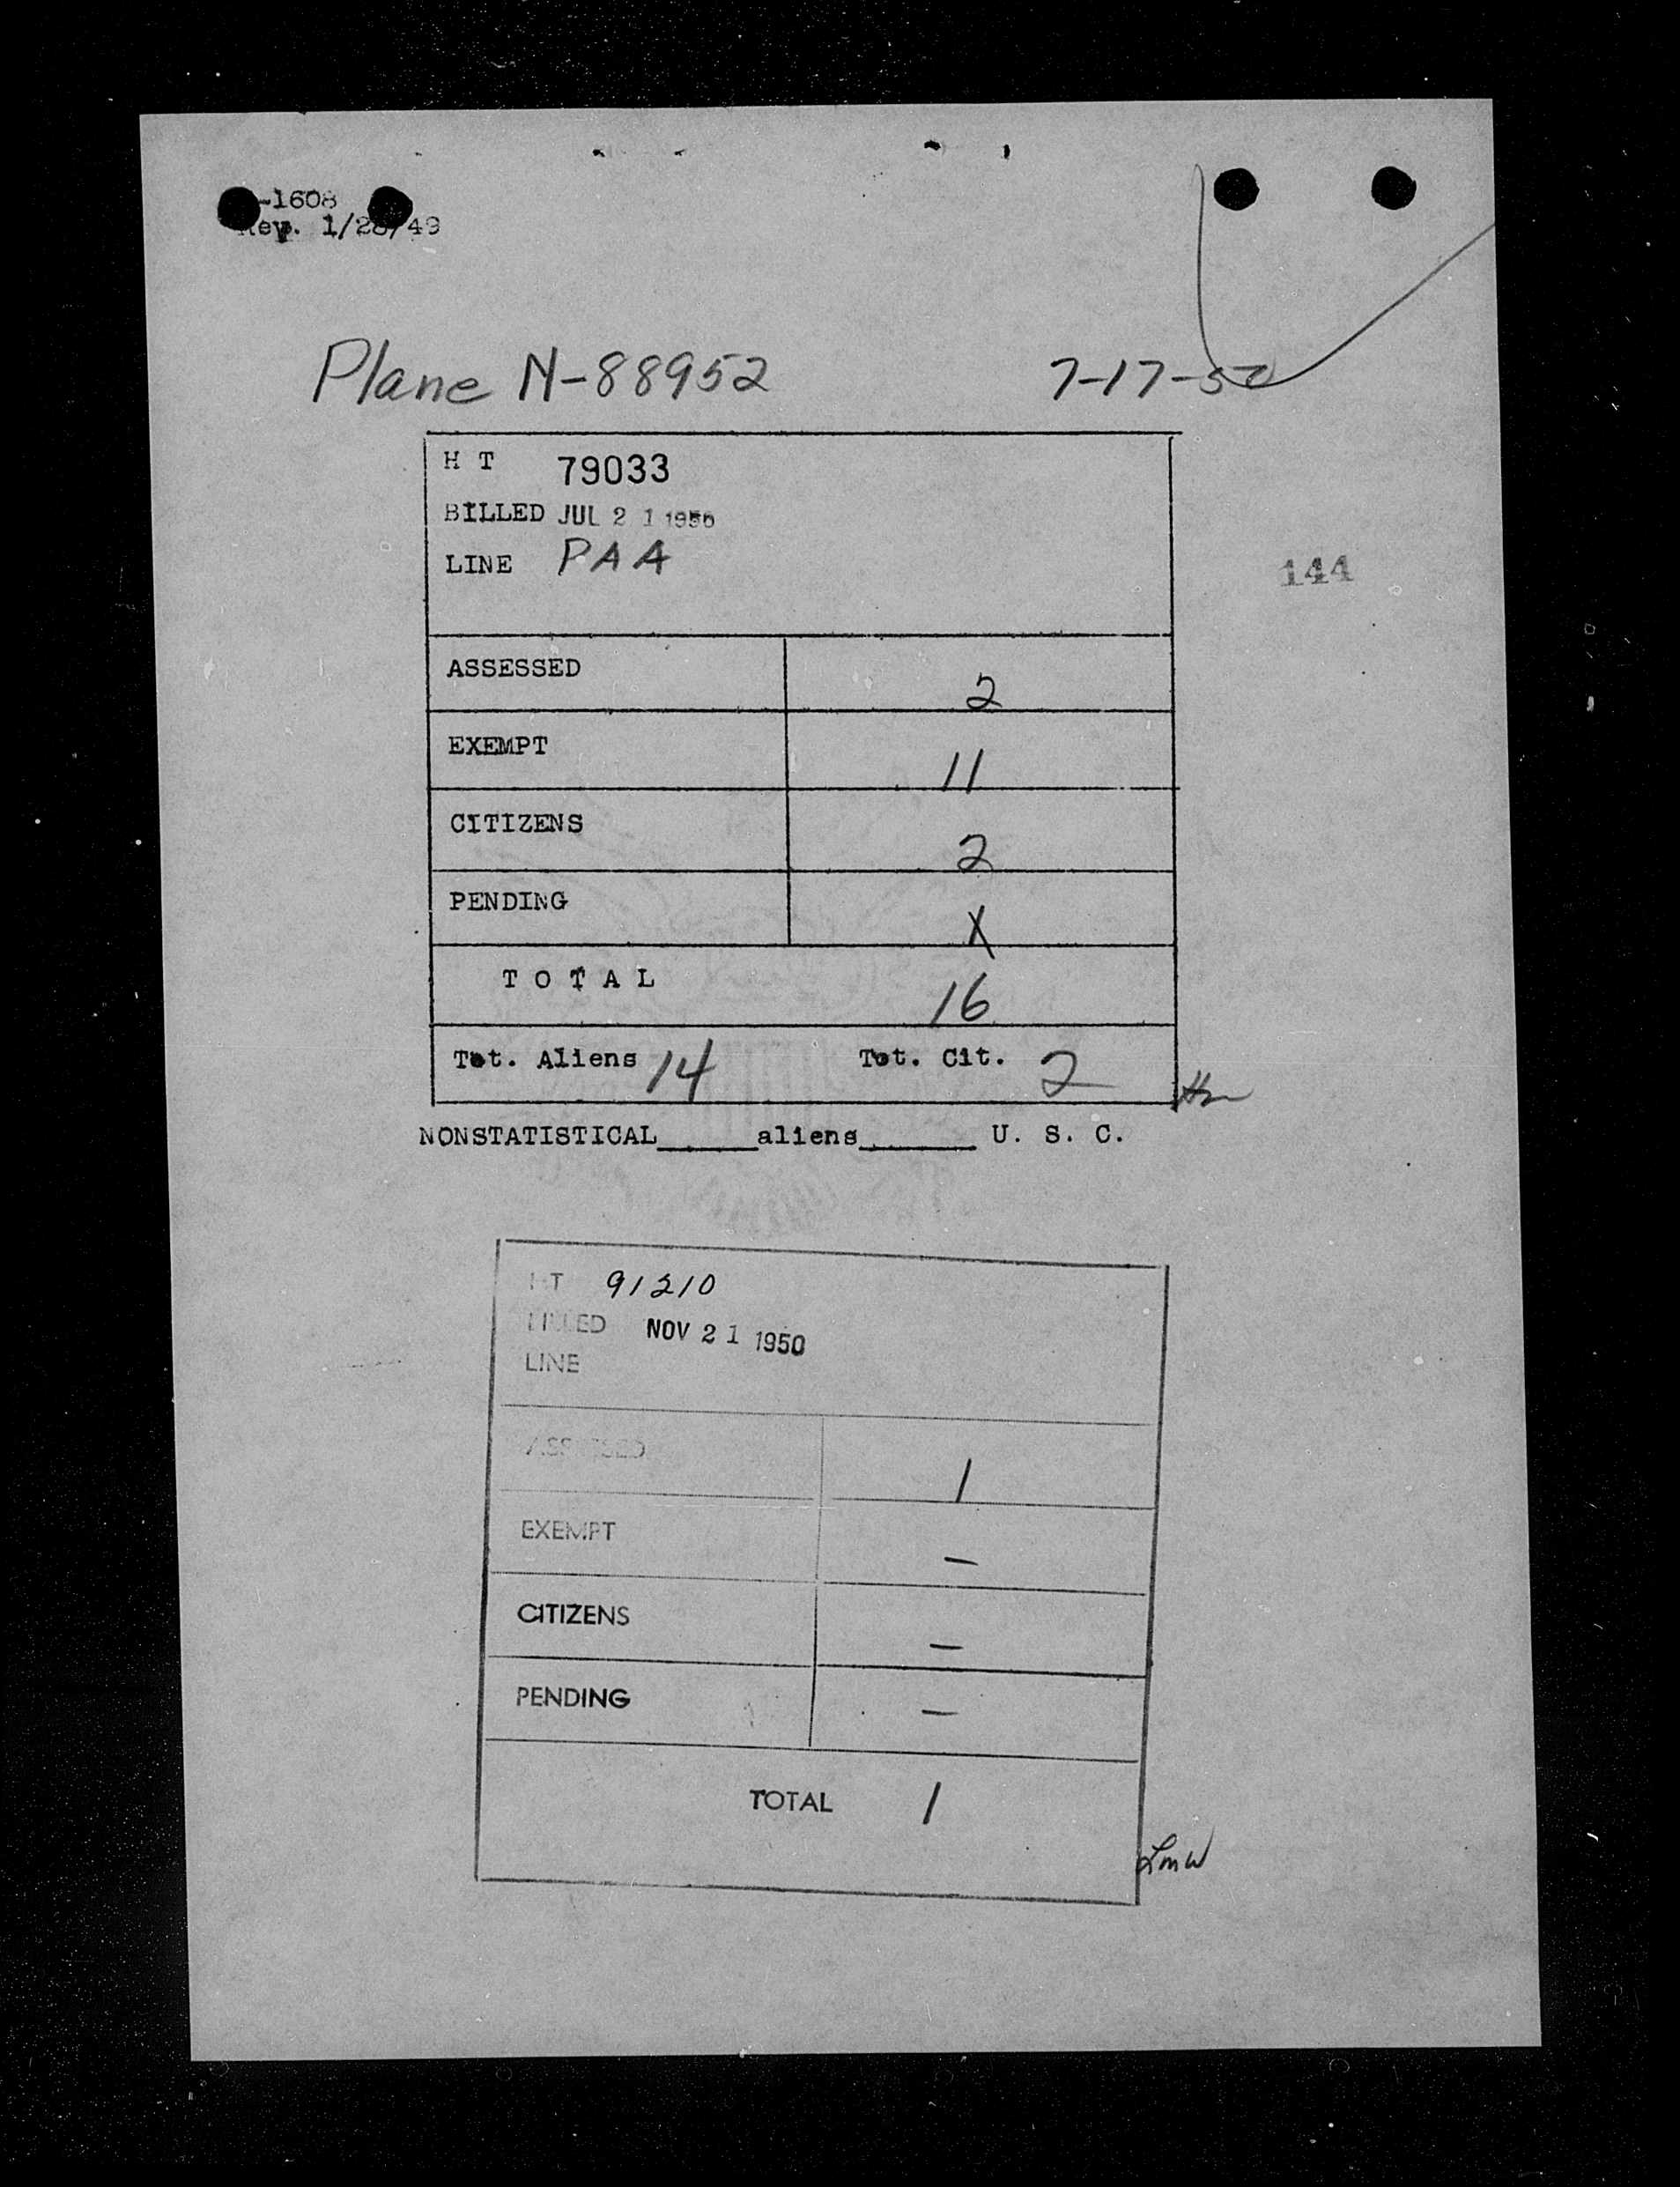 -1608
Rev. 1/28/49
Plane N-88952 7-17-50
H T 79033
BILLED JUL 21 1950
LINE PAA
144
ASSESSED 2
EXEMPT 11
CITIZENS 2
PENDING X
TOTAL 16
Tot. Aliens 14 Tot. Cit. 2
NONSTATISTICAL______aliens_______ U. S. C.
HT 91210
BILLED NOV 21 1950
LINE
ASSESSED 1
EXEMPT –
CITIZENS –
PENDING –
TOTAL 1
LMW